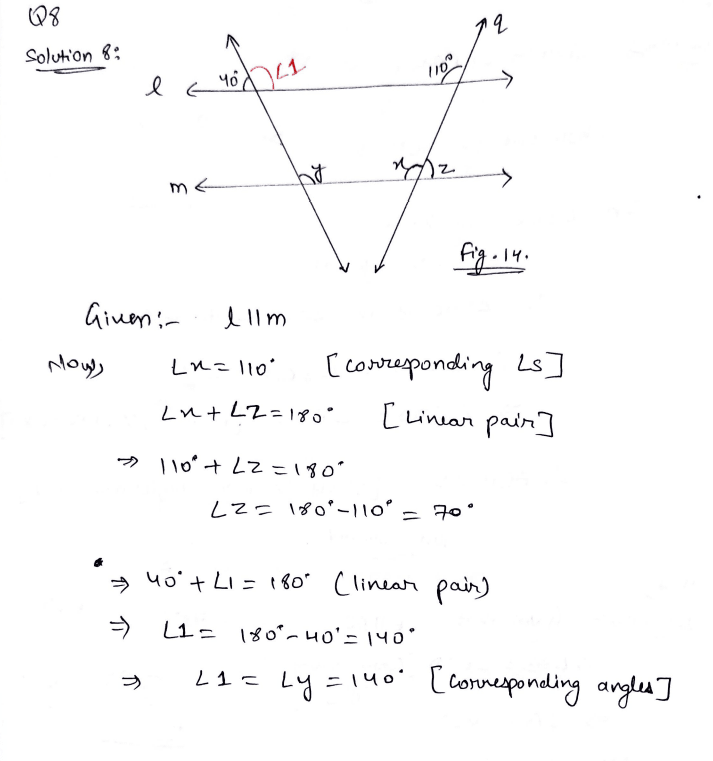 Q8
Solution 8:
q
40° ∠1 110°
l
y x z
m
Fig. 14.
Given:- l || m
Now, ∠x = 110° [corresponding ∠s]
∠x + ∠z = 180° [Linear pair]
⇒ 110° + ∠z = 180°
∠z = 180° - 110° = 70°
⇒ 40° + ∠1 = 180° (linear pair)
⇒ ∠1 = 180° - 40° = 140°
⇒ ∠1 = ∠y = 140° [corresponding angles]